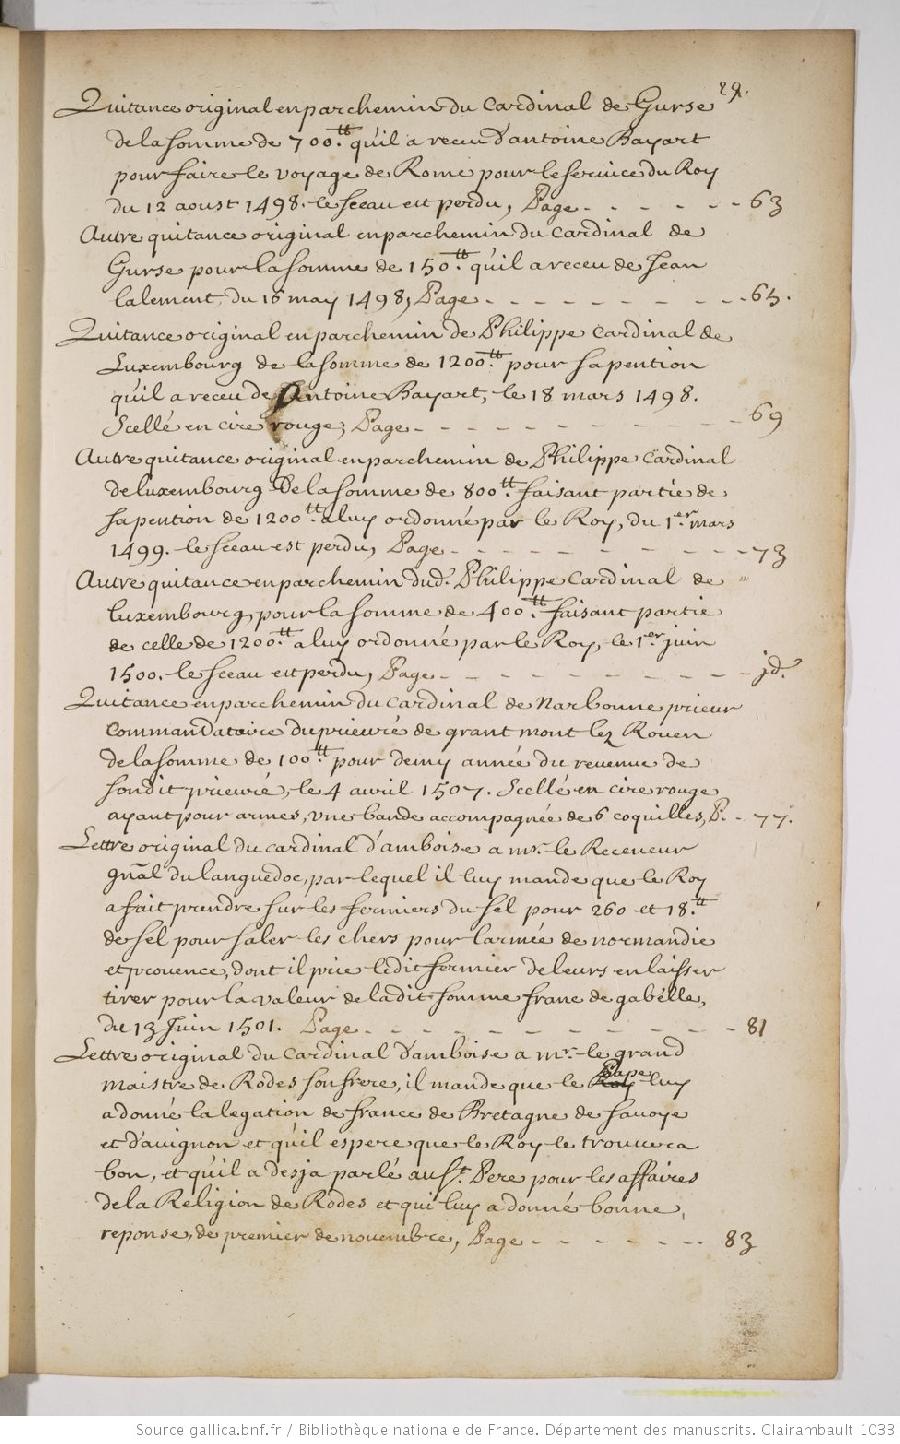 29.
Quitance original en parchemin du Cardinal de Gurse
de la somme de 700.tt qu'il a receu d'antoine Bayart
pour faire le voyage de Rome pour le service du Roy
du 12 aoust 1498. le sceau est perdu, Page - - - - - - 63
Autre quitance original en parchemin du Cardinal de
Gurse pour la somme de 150.tt qu'il a receu de Jean
lalement, du 16 may 1498, Page - - - - - - - - - 65.
Quitance original en parchemin de Philippe Cardinal de
Luxembourg de la somme de 1200tt pour sa pention
qu'il a receu de Antoine Bayart, le 18 mars 1498.
Scellé en cire rouge, Page - - - - - - - - - - - 69
Autre quitance original en parchemin de Philippe Cardinal
de luxembourg De la somme de 800.tt faisant partie de
sa pention de 1200.tt a luy ordonné par le Roy, du 1.er mars
1499. le sceau est perdu, Page - - - - - - - - - - 73
Autre quitance en parchemin dud.t Philippe Cardinal de
luxembourg, pour la somme de 400.tt faisant partie
de celle de 1200.tt a luy ordonné par le Roy, le 1.er juin
1500. le sceau est perdu, Page - - - - - - - - - - jd.
Quitance en parchemin du Cardinal de Narbonne prieur
Commandataire du prieuré de grant mont lez Rouen
de la somme de 100.tt pour demy année du revenu de
son dit prieuré, le 4 avril 1507. Scellé en cire rouge
ayant pour armes, une bande accompagnée de 6 coquilles, P. - 77.
Lettre original du Cardinal d'amboise a mr. le Receveur
gnãl du languedoc, par lequel il luy mande que le Roy
a fait prendre sur les fermiers du sel pour 260 et 18.tt
de sel pour saler les chers pour l'armée de normandie
et prouence, dont il prie ledit fermier de leurs en laisser
tirer pour la valeur de ladit somme franc de gabelle,
du 13 Juin 1501. Page - - - - - - - - - - - 81
Lettre original du Cardinal d'amboise a mr. le grand
maistre de Rodes son frere, il mande que le Roy Pape luy
a donné la legation de france de Bretagne de Savoye
et d'avignon et qu'il espere que le Roy le trouvera
bon, et qu'il a desja parlé au st. Pere pour les affaires
de la Religion de Rodes et qui luy a donné bonne
reponse, de premier de novembre, Page - - - - - - - 83
Source gallica.bnf.fr / Bibliothèque nationale de France. Département des manuscrits. Clairambault 1033